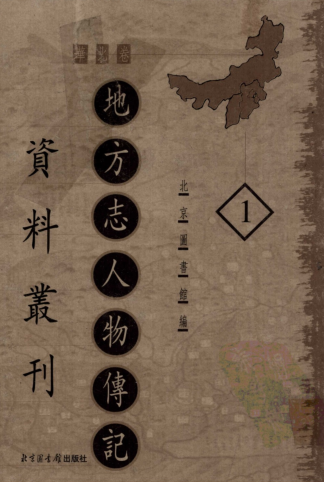 地方志人物傳記
資料叢刊
北京圖書館編
1
北京图书馆出版社